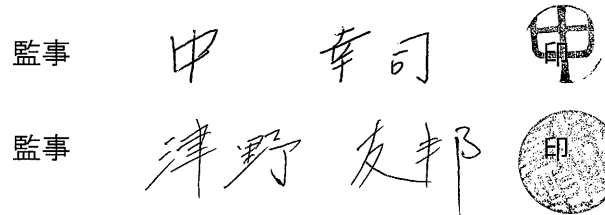 監事 中 幸司 印
監事 津野 友邦 印